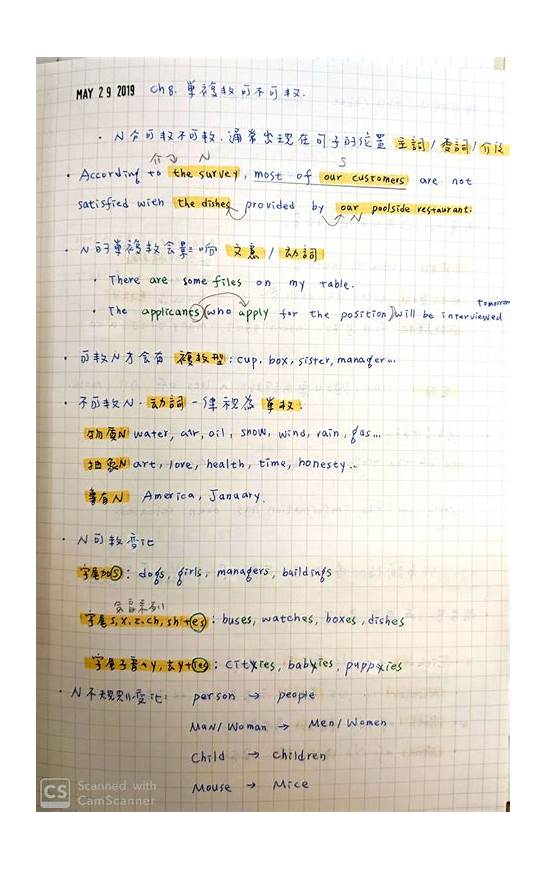 MAY 29 2019 Ch 8. 單複數可不可數.
• N分可數不可數. 通常出現在句子的位置 主詞 / 受詞 / 介後
介 N S
• According to the survey, most of our customers are not
satisfied with the dishes provided by our poolside restaurant.
N
• N的單複數會影响 文意 / 动詞
• There are some files on my table.
tomorrow
• The applicants (who apply for the position) will be interviewed
• 可数N才会有 複数型: cup. box, sister, manager...
• 不可数N. 动詞一律視為 單数:
物质N water, air, oil, snow, wind, rain, gas...
抽象N art, love, health, time, honesty...
專有N America, January.
• N可数变化
字尾加s: dogs, girls, managers, buildings
字尾s, x, z, ch, sh +es: buses, watches, boxes, dishes
字尾子音+y, 去y+ies: cityies, babyies, puppyies
• N不規則变化: person → people
Man/Woman → Men/Women
Child → Children
Mouse → Mice
CS Scanned with
CamScanner